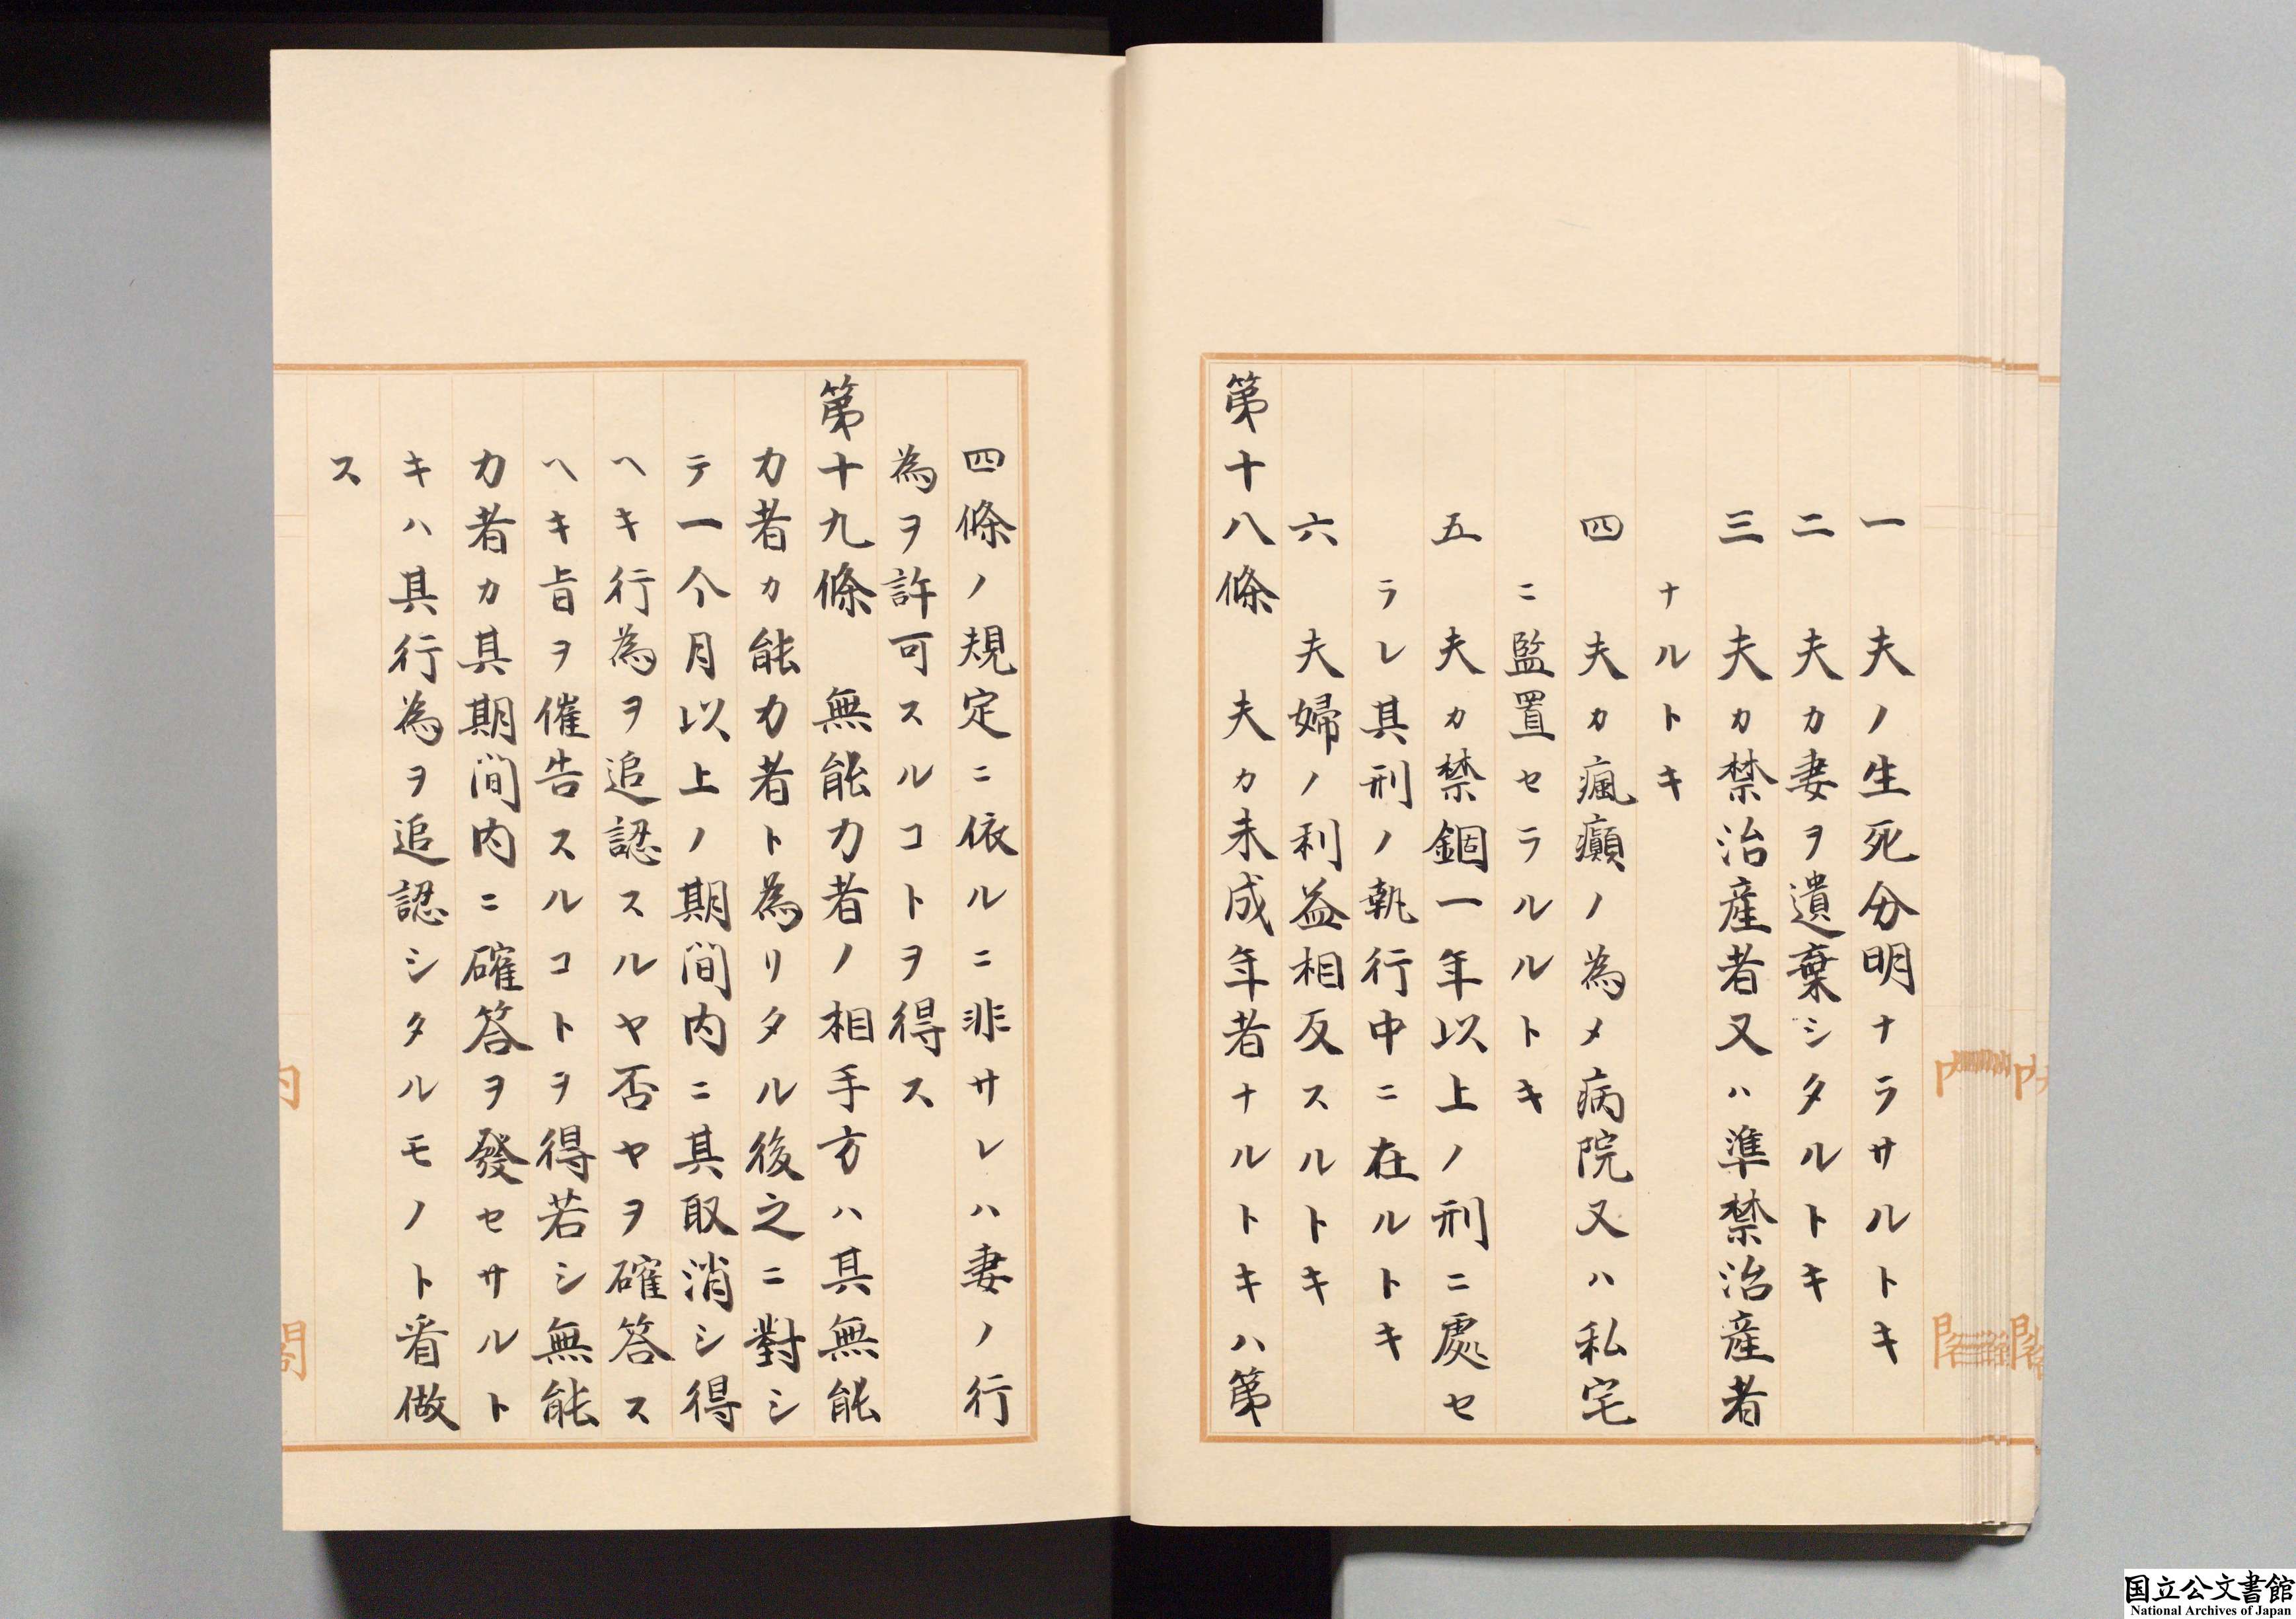 一　夫ノ生死分明ナラサルトキ
二　夫カ妻ヲ遺棄シタルトキ
三　夫カ禁治産者又ハ準禁治産者
ナルトキ
四　夫カ瘋癲ノ為メ病院又ハ私宅
ニ監置セラルルトキ
五　夫カ禁錮一年以上ノ刑ニ處セ
ラレ其刑ノ執行中ニ在ルトキ
六　夫婦ノ利益相反スルトキ
第十八條　夫カ未成年者ナルトキハ第
四條ノ規定ニ依ルニ非サレハ妻ノ行
為ヲ許可スルコトヲ得ス
第十九條　無能力者ノ相手方ハ其無能
力者カ能力者ト為リタル後之ニ對シ
テ一个月以上ノ期間内ニ其取消シ得
ヘキ行為ヲ追認スルヤ否ヤヲ確答ス
ヘキ旨ヲ催告スルコトヲ得若シ無能
力者カ其期間内ニ確答ヲ發セサルト
キハ其行為ヲ追認シタルモノト看做
ス
内閣
国立公文書館
National Archives of Japan